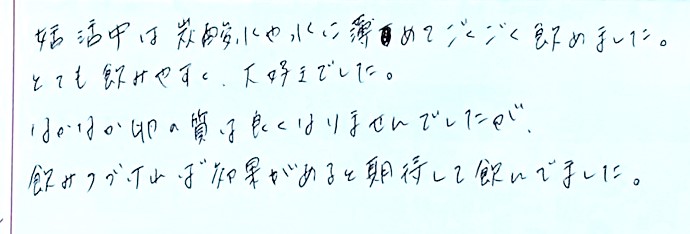 妊活中は炭酸水や水に薄めてごくごく飲めました。
とても飲みやすく、大好きでした。
なかなか卵の質は良くなりませんでしたが、
飲みつづければ効果があると期待して飲んでました。